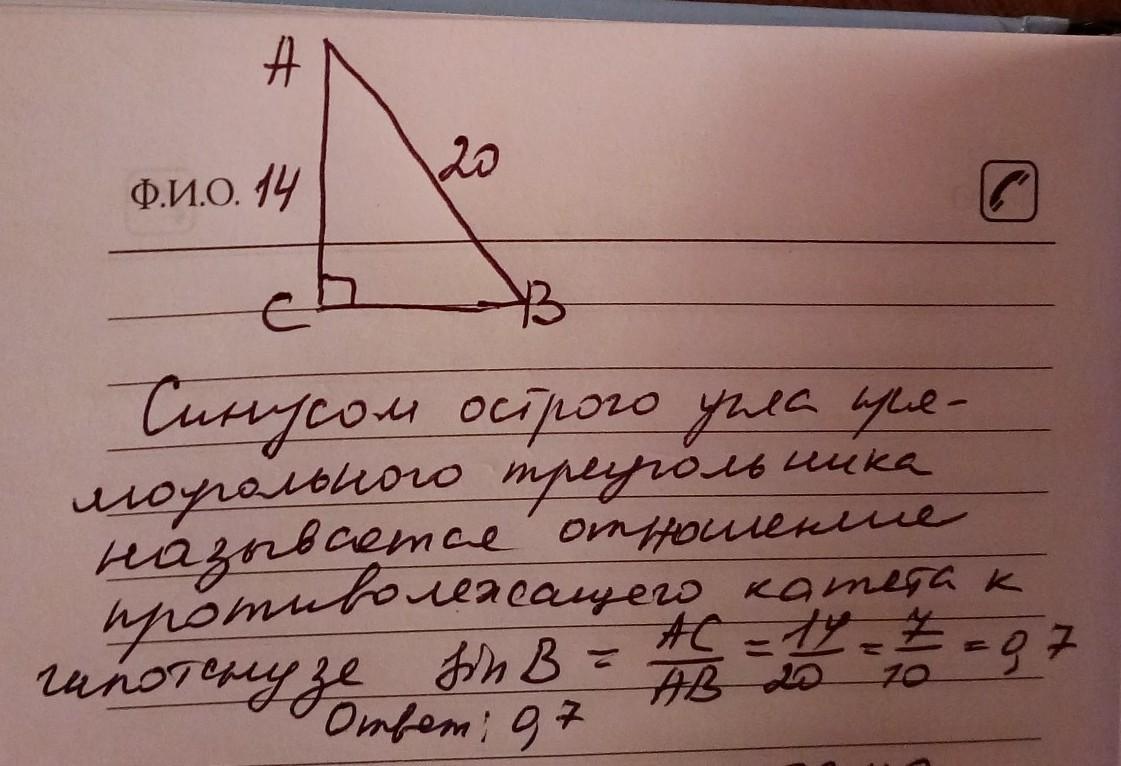 A
20
Ф.И.О. 14
C B
Синусом острого угла пря-
моугольного треугольника
называется отношение
противолежащего катета к
гипотенузе sin B = AC/AB = 14/20 = 7/10 = 0,7
Ответ: 0,7